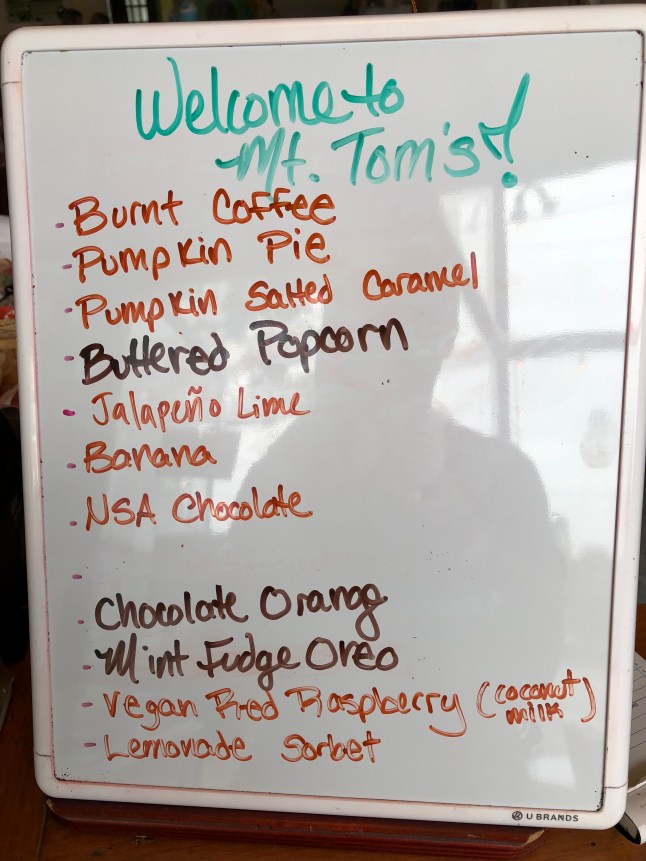 Welcome to
Mt. Tom's!
- Burnt Coffee
- Pumpkin Pie
- Pumpkin Salted Caramel
- Buttered Popcorn
- Jalapeño Lime
- Banana
- NSA Chocolate
-
- Chocolate Orang
- Mint Fudge Oreo
- Vegan Red Raspberry (coconut milk)
- Lemonade Sorbet
U BRANDS